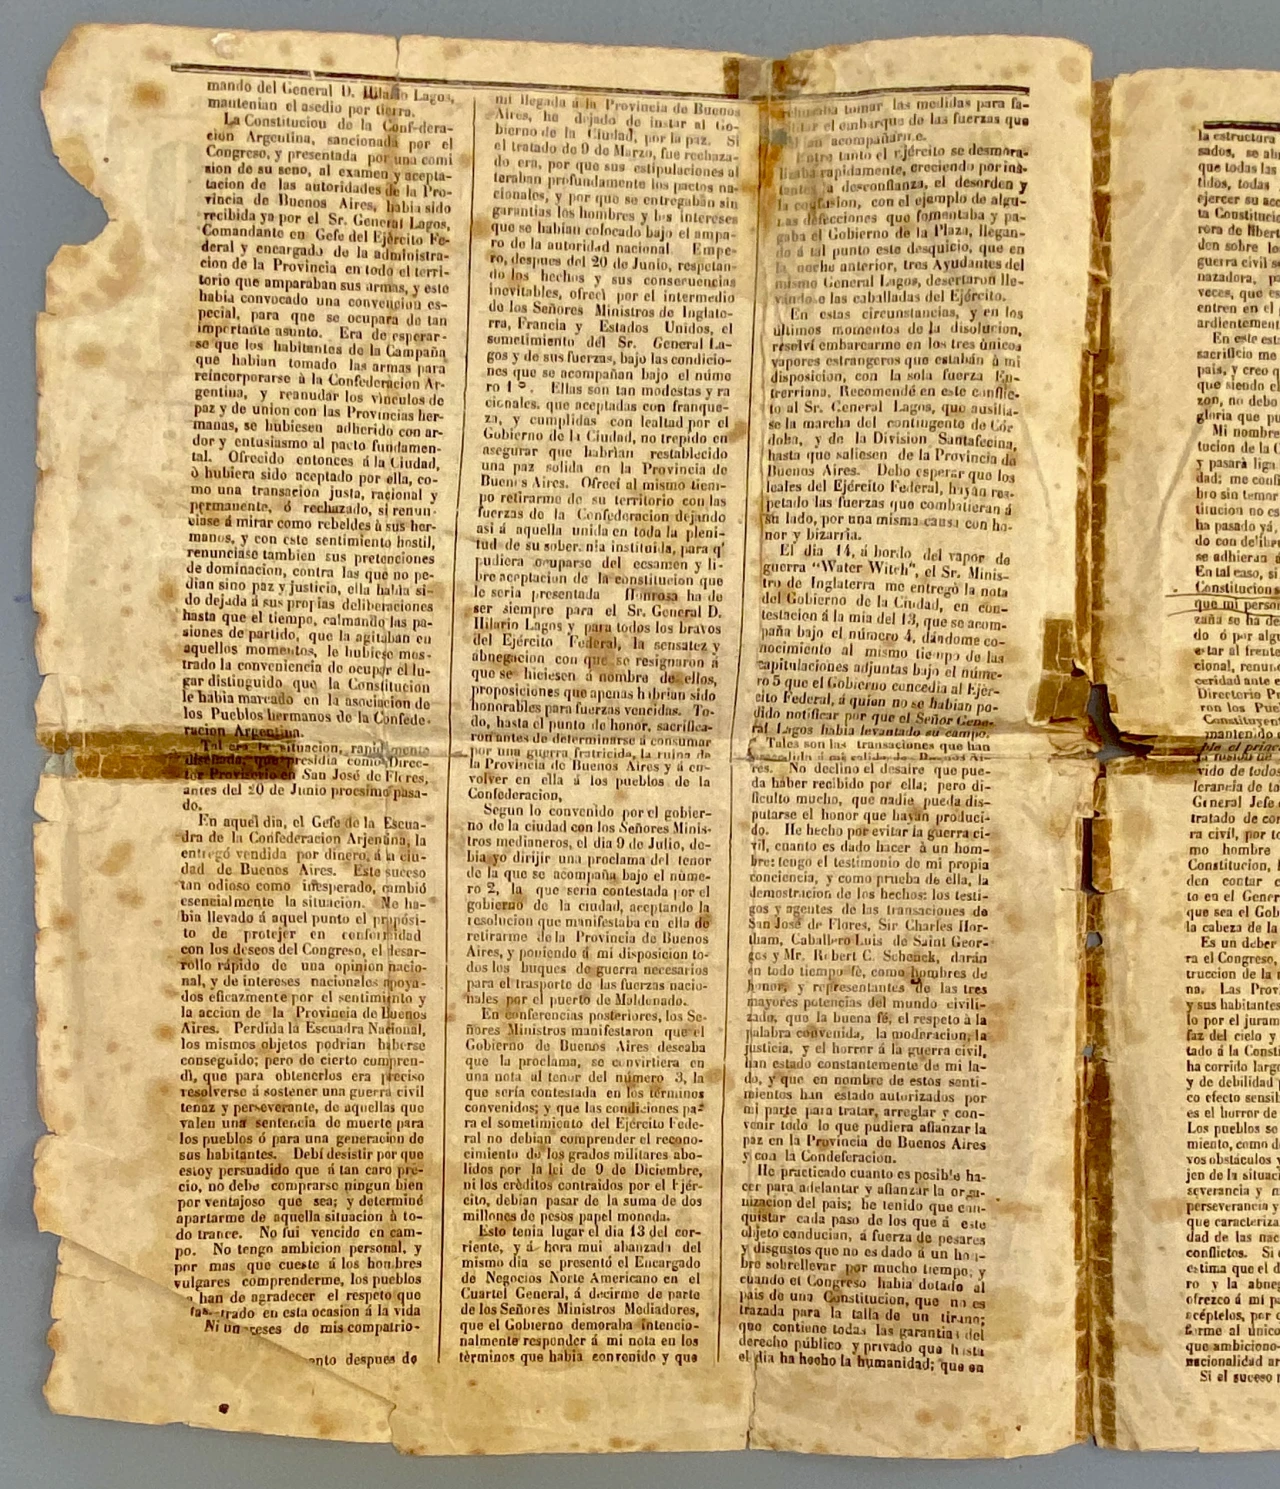 mando del General D. Hilario Lagos,
mantenian el asedio por tierra.
La Constitucion de la Confedera-
cion Argentina, sancionada por el
Congreso, y presentada por una comi
sion de su seno, al examen y acepta-
tacion de las autoridades de la Pro-
vincia de Buenos Aires, habia sido
recibida ya por el Sr. General Lagos,
Comandante en Gefe del Ejército Fe-
deral y encargado de la administra-
cion de la Provincia en todo el terri-
torio que amparaban sus armas, y este
habia convocado una convencion es-
pecial, para que se ocupara de tan
importante asunto. Era de esperar-
se que los habitantes de la Campaña
que habian tomado las armas para
reincorporarse à la Confederacion Ar-
gentina, y reanudar los vinculos de
paz y de union con las Provincias her-
manas, se hubiesen adherido con ar-
dor y entusiasmo al pacto fundamen-
tal. Ofrecido entonces á la Ciudad,
ò hubiera sido aceptado por ella, co-
mo una transacion justa, racional y
permanente, ó rechazado, si renun-
ciase á mirar como rebeldes à sus her-
manos, y con este sentimiento hostil,
renunciase tambien sus pretenciones
de dominacion, contra las que no pe-
dian sino paz y justicia, ella habia si-
do dejada á sus propias deliberaciones
hasta que el tiempo, calmando las pa-
siones de partido, que la agitaban en
aquellos momentos, le hubiese mos-
trado la conveniencia de ocupar el lu-
gar distinguido que la Constitucion
le habia marcado en la asociacion de
los Pueblos hermanos de la Confede-
racion Argentina.
Tal era la situacion, rapidamente
diseñada, que presidia como Direc-
tor Provisorio en San José de Flores,
antes del 20 de Junio procsimo pasa-
do.
En aquel dia, el Gefe de la Escua-
dra de la Confederacion Arjentina, la
entregó vendida por dinero, á la ciu-
dad de Buenos Aires. Este suceso
tan odioso como inesperado, cambió
esencialmente la situacion. No ha-
bia llevado á aquel punto el propósi-
to de protejer en conformidad
con los deseos del Congreso, el desar-
rollo rápido de una opinion nacio-
nal, y de intereses nacionales apoya-
dos eficazmente por el sentimiento y
la accion de la Provincia de Buenos
Aires. Perdida la Escuadra Nacional,
los mismos objetos podrian haberse
conseguido; pero de cierto compren-
dì, que para obtenerlos era preciso
resolverse á sostener una guerra civil
tenaz y perseverante, de aquellas que
valen una sentencia de muerte para
los pueblos ó para una generacion de
sus habitantes. Debí desistir por que
estoy persuadido que á tan caro pre-
cio, no debe comprarse ningun bien
por ventajoso que sea; y determiné
apartarme de aquella situacion à to-
do trance. No fui vencido en cam-
po. No tengo ambicion personal, y
por mas que cueste á los hombres
vulgares comprenderme, los pueblos
han de agradecer el respeto que
trado en esta ocasión á la vida
Ni un eses de mis compatrio-
ento despues de
mi llegada á la Provincia de Buenos
Aires, he dejado de instar al Go-
bierno de la Ciudad, por la paz. Si
el tratado de 9 de Marzo, fue rechaza-
do era, por que sus estipulaciones al
teraban profundamente los pactos na-
cionales, y por que se entregaban sin
garantias los hombres y los intereses
que se habian colocado bajo el ampa-
ro de la autoridad nacional. Empe-
ro, despues del 20 de Junio, respetan-
do los hechos y sus consecuencias
inevitables, ofreci por el intermedio
de los Señores Ministros de Inglate-
rra, Francia y Estados Unidos, el
sometimiento del Sr. General La-
gos y de sus fuerzas, bajo las condicio-
nes que se acompañan bajo el núme
ro 1º. Ellas son tan modestas y ra
cionales, que aceptadas con franque-
za, y cumplidas con lealtad por el
Gobierno de la Ciudad, no trepido en
asegurar que habrian restablecido
una paz solida en la Provincia de
Buenos Aires. Ofreci al mismo tiem-
po retirarme de su territorio con las
fuerzas de la Confederacion dejando
asi á aquella unida en toda la pleni-
tud de su soberania instituida, para q'
pudiera ocuparse del ecsamen y li-
bre aceptacion de la constitucion que
le seria presentada Honrosa ha de
ser siempre para el Sr. General D.
Hilario Lagos y para todos los bravos
del Ejército Federal, la sensatez y
abnegacion con que se resignaron á
que se hiciesen á nombre de ellos,
proposiciones que apenas habrian sido
honorables para fuerzas vencidas. To-
do, hasta el punto de honor, sacrifica-
ron antes de determinarse á consumar
por una guerra fratricida, la ruina de
la Provincia de Buenos Aires y á en-
volver en ella á los pueblos de la
Confederacion,
Segun lo convenido por el gobier-
no de la ciudad con los Señores Minis-
tros medianeros, el dia 9 de Julio, de-
bia yo dirijir una proclama del tenor
de la que se acompaña bajo el núme-
ro 2, la que seria contestada por el
gobierno de la ciudad, aceptando la
resolucion que manifestaba en ella de
retirarme de la Provincia de Buenos
Aires, y poniendo á mi disposicion to-
dos los buques de guerra necesarios
para el trasporte de las fuerzas nacio-
nales por el puerto de Maldonado.
En conferencias posteriores, los Se-
ñores Ministros manifestaron que el
Gobierno de Buenos Aires deseaba
que la proclama, se convirtiera en
una nota al tenor del número 3, la
que sería contestada en los tèrminos
convenidos; y que las condiciones pa-
ra el sometimiento del Ejército Fede-
ral no debian comprender el recono-
cimiento de los grados militares abo-
lidos por la lei de 9 de Diciembre,
ni los crèditos contraidos por el Ejér-
cito, debian pasar de la suma de dos
millones de pesos papel moneda.
Esto tenia lugar el dia 13 del cor-
riente, y á hora mui abanzada del
mismo dia se presentó el Encargado
de Negocios Norte Americano en el
Cuartel General, á decirme de parte
de los Señores Ministros Mediadores,
que el Gobierno demoraba intencio-
nalmente responder á mi nota en los
tèrminos que habia convenido y que
tomar las medidas para fa-
el embarque de las fuerzas que
an acompañarme.
Entre tanto el ejército se desmora-
lizaba rapidamente, creciendo por ins-
tantes la desconfianza, el desorden y
la confusion, con el ejemplo de algu-
nas defecciones que fomentaba y pa-
gaba el Gobierno de la Plaza, llegan-
do á tal punto este desquicio, que en
la noche anterior, tres Ayudantes del
mismo General Lagos, desertaron lle-
vándose las caballadas del Ejército.
En estas circunstancias, y en los
últimos momentos de la disolucion,
resolví embarcarme en los tres únicos
vapores estrangeros que estabán à mi
disposicion, con la sola fuerza En-
trerriana. Recomendé en este conflic-
to al Sr. General Lagos, que ausilia-
se la marcha del contingente de Cór
doba, y de la Division Santafecina,
hasta que saliesen de la Provincia de
Buenos Aires. Debo esperar que los
leales del Ejército Federal, hayan res-
petado las fuerzas que combatieran á
su lado, por una misma causa con ho-
nor y bizarria.
El dia 14, á bordo del vapor de
guerra "Water Witch", el Sr. Minis-
tro de Inglaterra me entregò la nota
del Gobierno de la Ciudad, en con-
testacion á la mia del 13, que se acom-
paña bajo el número 4, dándome co-
nocimiento al mismo tiempo de las
capitulaciones adjuntas bajo el núme-
ro 5 que el Gobierno concedia al Ejér-
cito Federal, á quien no se habian po-
dido notificar por que el Señor Gene-
ral Lagos habia levantado su campo.
Tales son las transaciones que han
precedido á mi salida de Buenos Ai-
res. No declino el desaire que pue-
da haber recibido por ella; pero di-
ficulto mucho, que nadie pueda dis-
putarse el honor que hayan produci-
do. He hecho por evitar la guerra ci-
vil, cuanto es dado hacer à un hom-
bre: tengo el testimonio de mi propia
conciencia, y como prueba de ella, la
demostracion de los hechos: los testi-
gos y agentes de las transaciones de
San José de Flores, Sir Charles Hor-
tham, Caballero Luis de Saint Geor-
ges y Mr. Robert C. Schenck, darán
en todo tiempo fé, como hombres de
honor, y representantes de las tres
mayores potencias del mundo civili-
zado, que la buena fé, el respeto à la
palabra convenida, la moderacion, la
justicia, y el horror á la guerra civil,
han estado constantemente de mi la-
do, y que en nombre de estos senti-
mientos han estado autorizados por
mi parte para tratar, arreglar y con-
venir todo lo que pudiera afianzar la
paz en la Provincia de Buenos Aires
y con la Condeferacion.
He practicado cuanto es posible ha-
cer para adelantar y afianzar la orga-
nizacion del pais; he tenido que con-
quistar cada paso de los que á este
objeto conducian, á fuerza de pesares
y disgustos que no es dado á un hom-
bre sobrellevar por mucho tiempo; y
cuando el Congreso habia dotado al
pais de una Constitucion, que no es
trazada para la talla de un tirano;
que contiene todas las garantias del
derecho público y privado que hasta
el dia ha hecho la humanidad; que en
la estructura
sados, se ab
que todas las
tidos, todas
ejercer su acc
ta Constitucio
rora de libert
den sobre lo
guerra civil s
nazadora, p
veces, que es
entren en el
ardientement
En este est
sacrificio me
pais, y creo q
que siendo el
zon, no debo
gloria que pu
Mi nombre
tucion de la C
y pasará liga
dad; me confi
bro sin temor
titucion no es
ha pasado yá.
do con delibe
se adhieran á
En tal caso, si
Constitucion s
que mi person
zaña se ha de
do ó por algu
estar al frente
cional, renun
ceridad ante e
Directorio Pr
ron los Pue
Constituyen
mantenido
ble el princi
vido de todos
lerancia de to
General Jefe
tratado de con
ra civil, por to
mo hombre
Constitucion, l
den contar c
to en el Gener
que sea el Gob
la cabeza de la
Es un deber
ra el Congreso,
truccion de la
na. Las Prov
y sus habitantes
lo por el juram
faz del cielo y
tado á la Consti
ha corrido largo
y de debilidad p
co efecto sensib
es el horror de
Los pueblos se
miento, como d
vos obstáculos y
jen de la situac
severancia y m
perseverancia y
que caracteriza
dad de las nac
conflictos. Si
estima que el d
ro y la abneg
ofrezco á mi pa
acéptelos, por
forme al único
que ambiciono
nacionalidad ar
Si el suceso